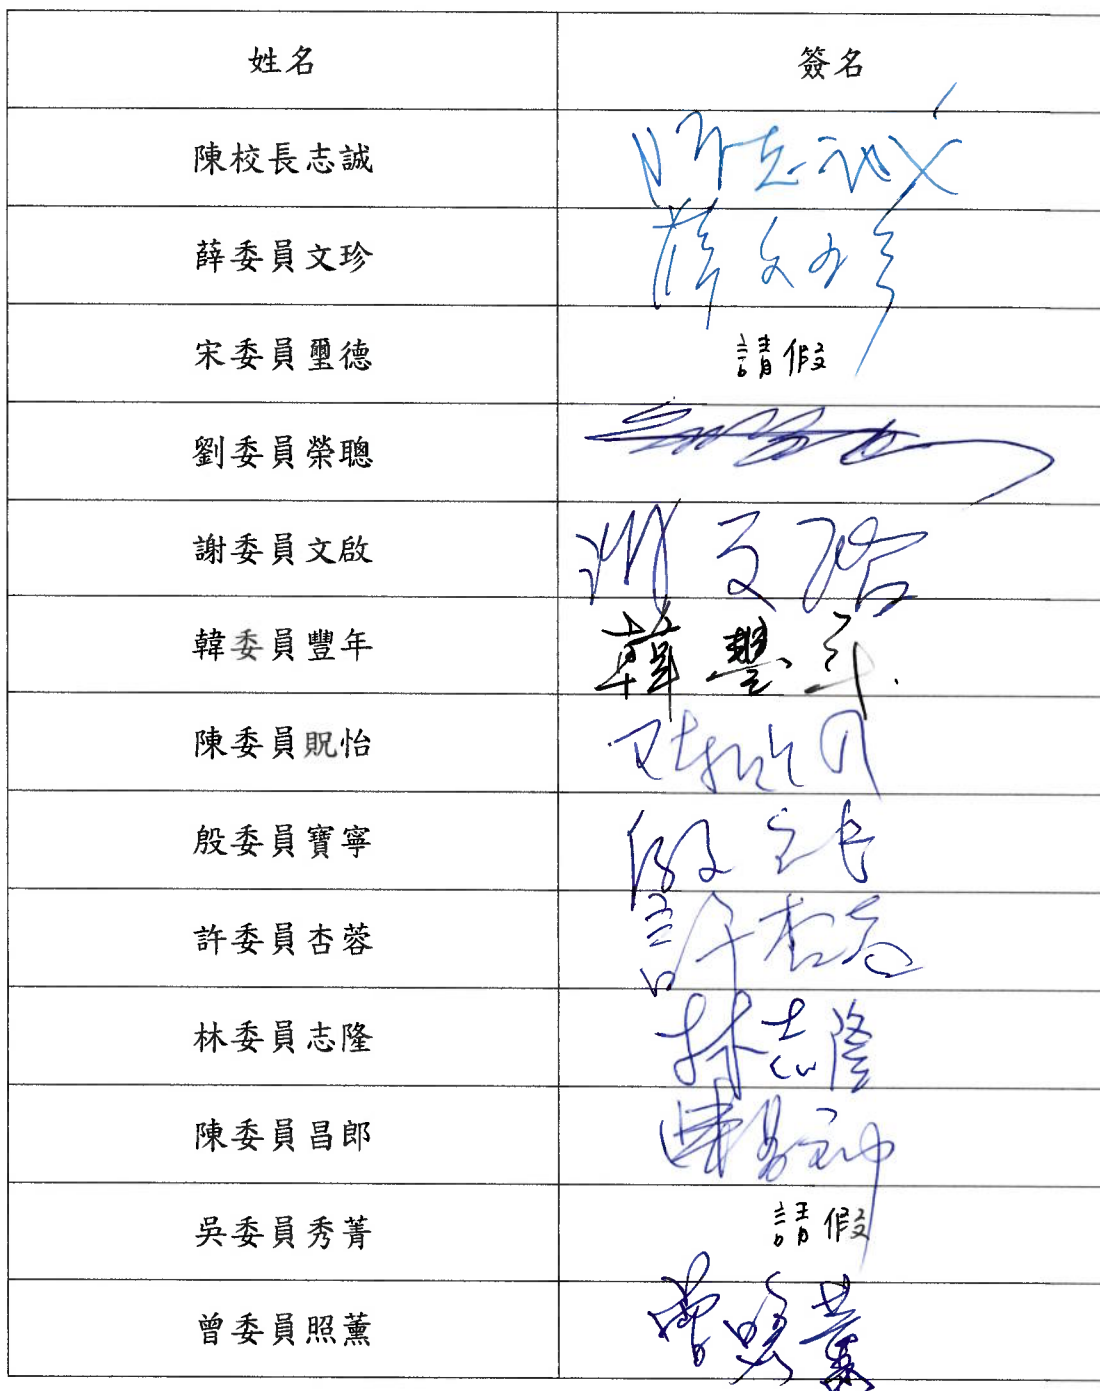 姓名 簽名
陳校長志誠 陳志誠
薛委員文珍 薛文珍
宋委員璽德 請假
劉委員榮聰
謝委員文啟 謝文啟
韓委員豐年 韓豐年
陳委員貺怡
殷委員寶寧 殷寶寧
許委員杏蓉 許杏蓉
林委員志隆 林志隆
陳委員昌郎 陳昌郎
吳委員秀菁 請假
曾委員照薰 曾照薰